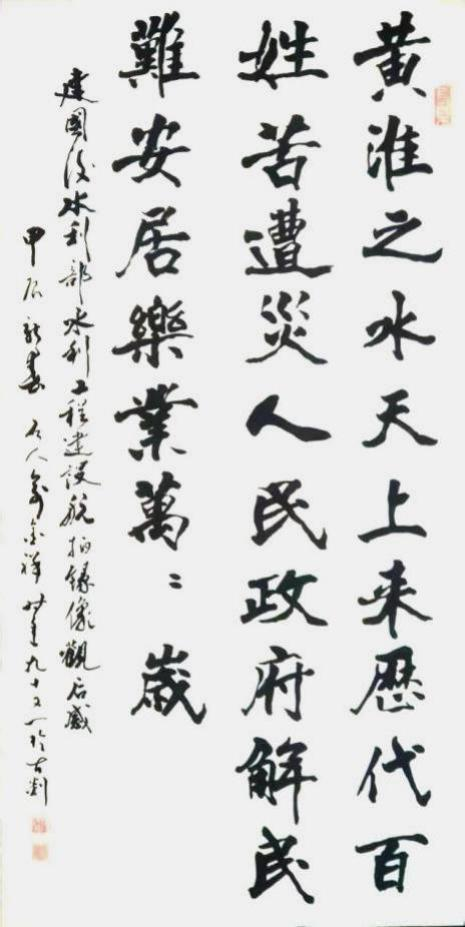 黄淮之水天上来歷代百
姓苦遭災人民政府解民
難安居樂業萬〻歲
建國後水利部水利工程建设航拍録像觀后感
甲辰新春 金祥 九十又一於古剡